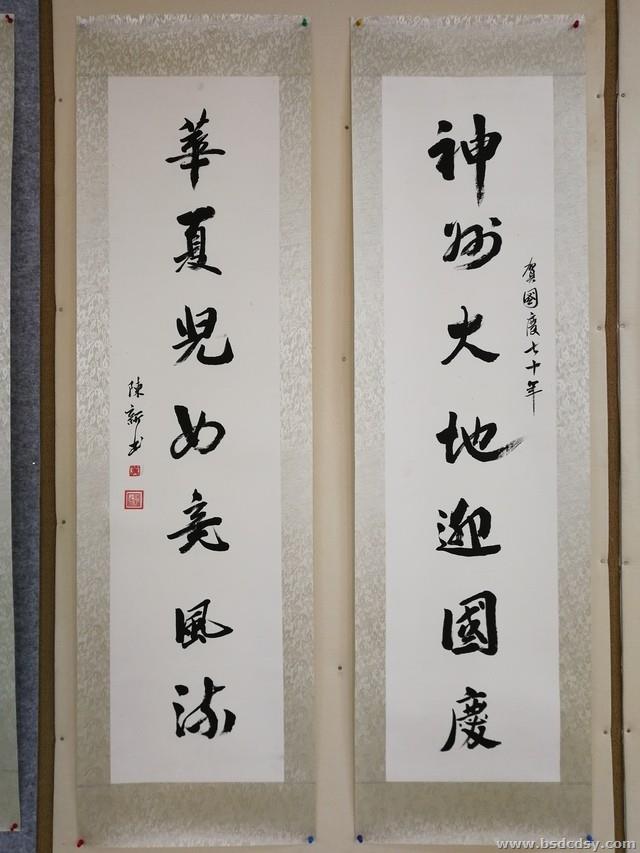 神州大地迎國慶
賀國慶七十年
華夏兒女竞風流
陳新书
www.bsdcdsy.com